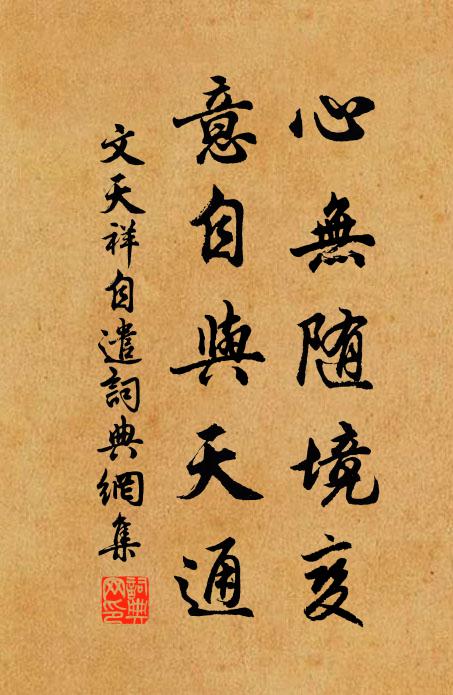 心無随境变
意自與天通
文天祥自遣詞典網集
詞典网印